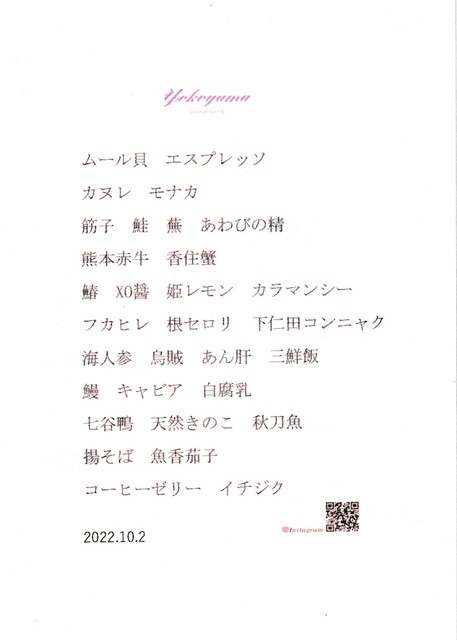 Yokoyama
ムール貝　エスプレッソ
カヌレ　モナカ
筋子　鮭　蕪　あわびの精
熊本赤牛　香住蟹
鰆　XO醬　姫レモン　カラマンシー
フカヒレ　根セロリ　下仁田コンニャク
海人参　烏賊　あん肝　三鮮飯
鰻　キャビア　白腐乳
七谷鴨　天然きのこ　秋刀魚
揚そば　魚香茄子
コーヒーゼリー　イチジク
Instagram
2022.10.2